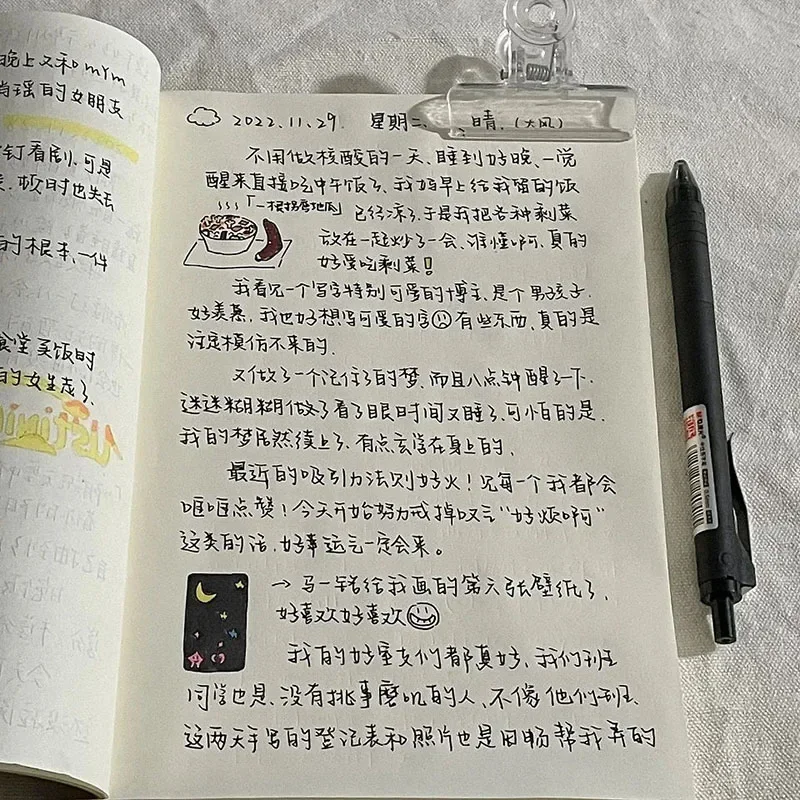 晚上又和mym
的女朋友
钉看剧.可是
板时也失去
的根本.一件
食堂买饭时
的女生走了.
2022.11.29. 星期二. 晴.(大风)
不用做核酸的一天、睡到好晚、一觉
醒来直接吃中午饭了、我妈早上给我留的饭
「一根拐弯地瓜」已经凉了.于是我把各种剩菜
放在一起炒了一会、谁懂啊.真的
好爱吃剩菜!
我看见一个写字特别可爱的博主、是个男孩子.
好羡慕、我也好想写可爱的字 有些东西、真的是
注定模仿不来的.
又做了一个记住了的梦、而且八点钟醒了一下.
迷迷糊糊做了看了眼时间又睡了、可怕的是.
我的梦居然续上了、有点玄学在身上的.
最近的吸引力法则好火!见每一个我都会
哐哐点赞!今天开始努力戒掉叹气"好烦啊"
这类的话、好事运气一定会来。
→ 马一铭给我画的第六张壁纸了、
好喜欢好喜欢
我的好室友们都真好、我们班
同学也是、没有挑事磨叽的人、不像他们班.
这两天手写的登记表和照片也是田畅帮我弄的